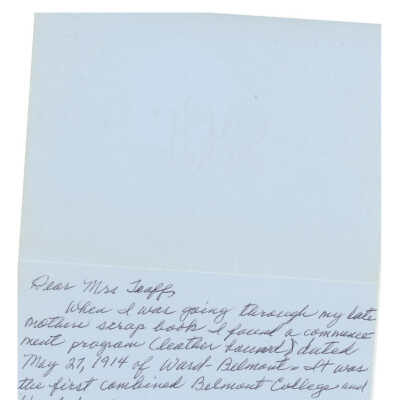 Dear Mrs
When I was going through my late
mothers scrap book I found a commence
ment program (leather bound) dated
May 27, 1914 of Ward-Belmont - It was
the first combined Belmont College and